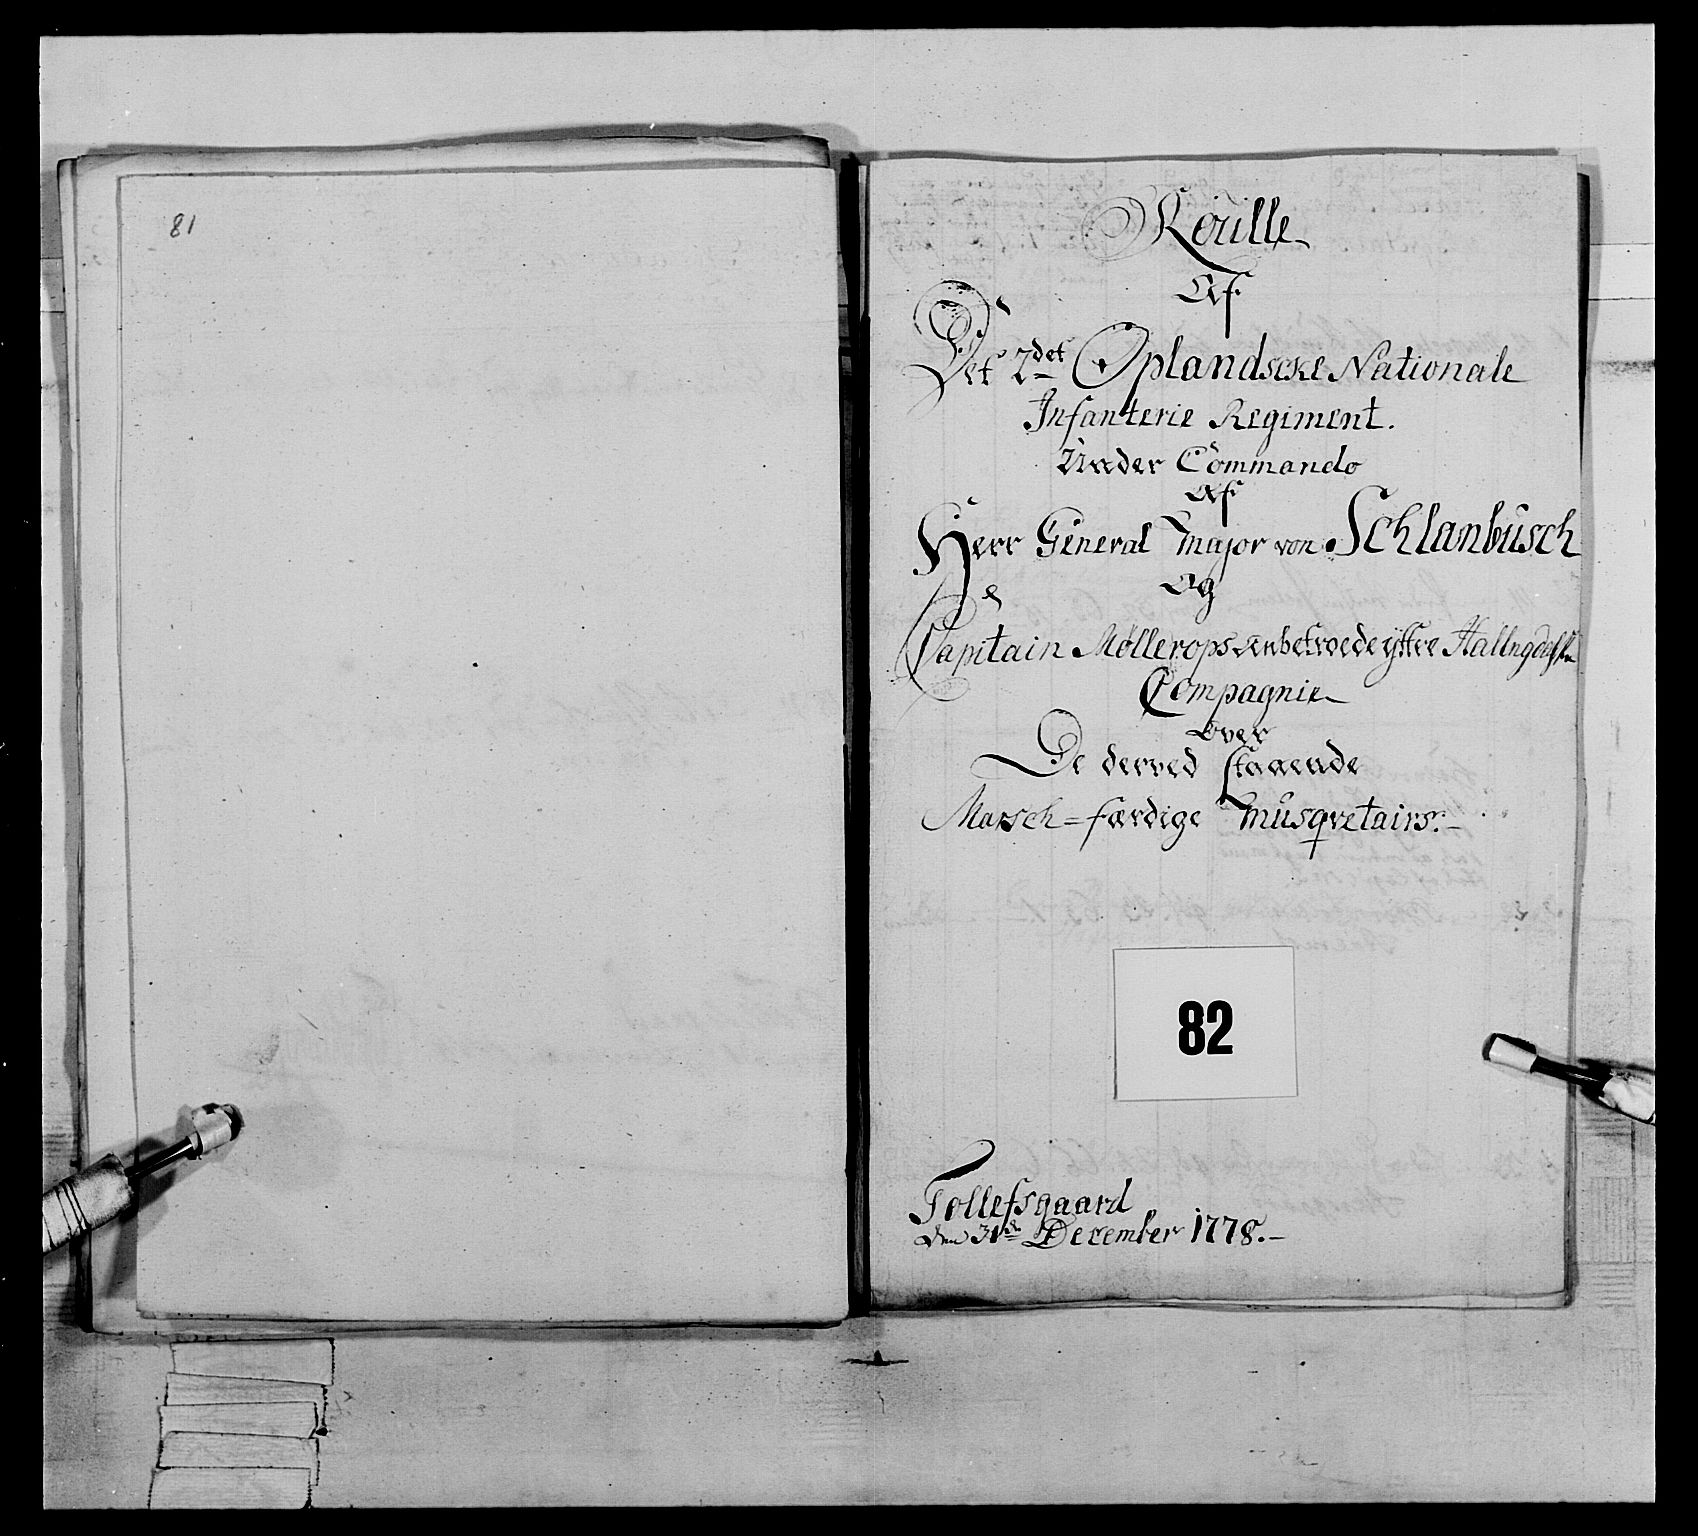 81
Roulle
Af
Det 2det Oplandscke Nationale
Infanterie Regiment.
Under Commando
Af
Herr General Major von Schlanbusch
Og
Capitain Møllerops anbetroede yttre
Compagnie
over
De derved staaende
Marsch=færdige Musqvetairs.-
82
Tollefsgaard
den 31te December 1778.-